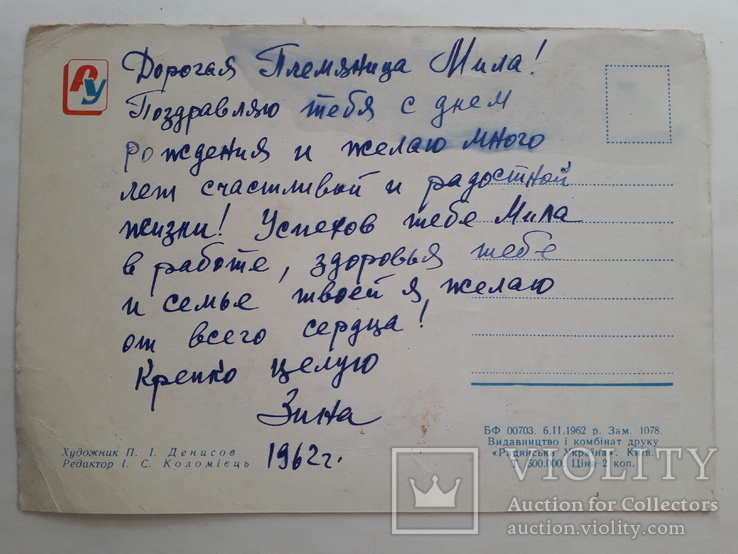 РУ
Дорогая Племяница Мила!
Поздравляю тебя с днем
рождения и желаю много
лет счастливой и радостной
жизни! Успехов тебе Мила
в работе, здоровья тебе
и семье твоей я желаю
от всего сердца!
Крепко целую
Зина
1962 г.
Художник П. І. Денисов
Редактор І. С. Коломієць
БФ 00703. 6.II.1962 р. Зам. 1078.
Видавництво і комбінат друку
«Радянська Україна». Київ.
500.000. Ціна 2 коп.
VIOLITY
Auction for Collectors
auction.violity.com